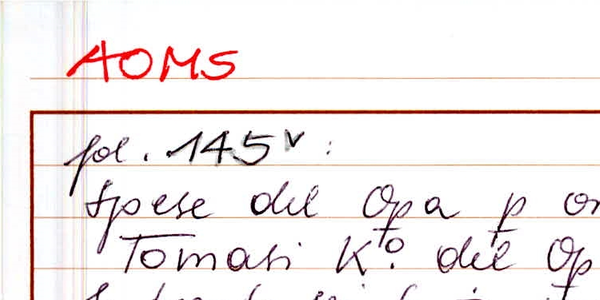 AOMS
fol. 145v:
Spese del Opa p
Tomasi Ko. del Op